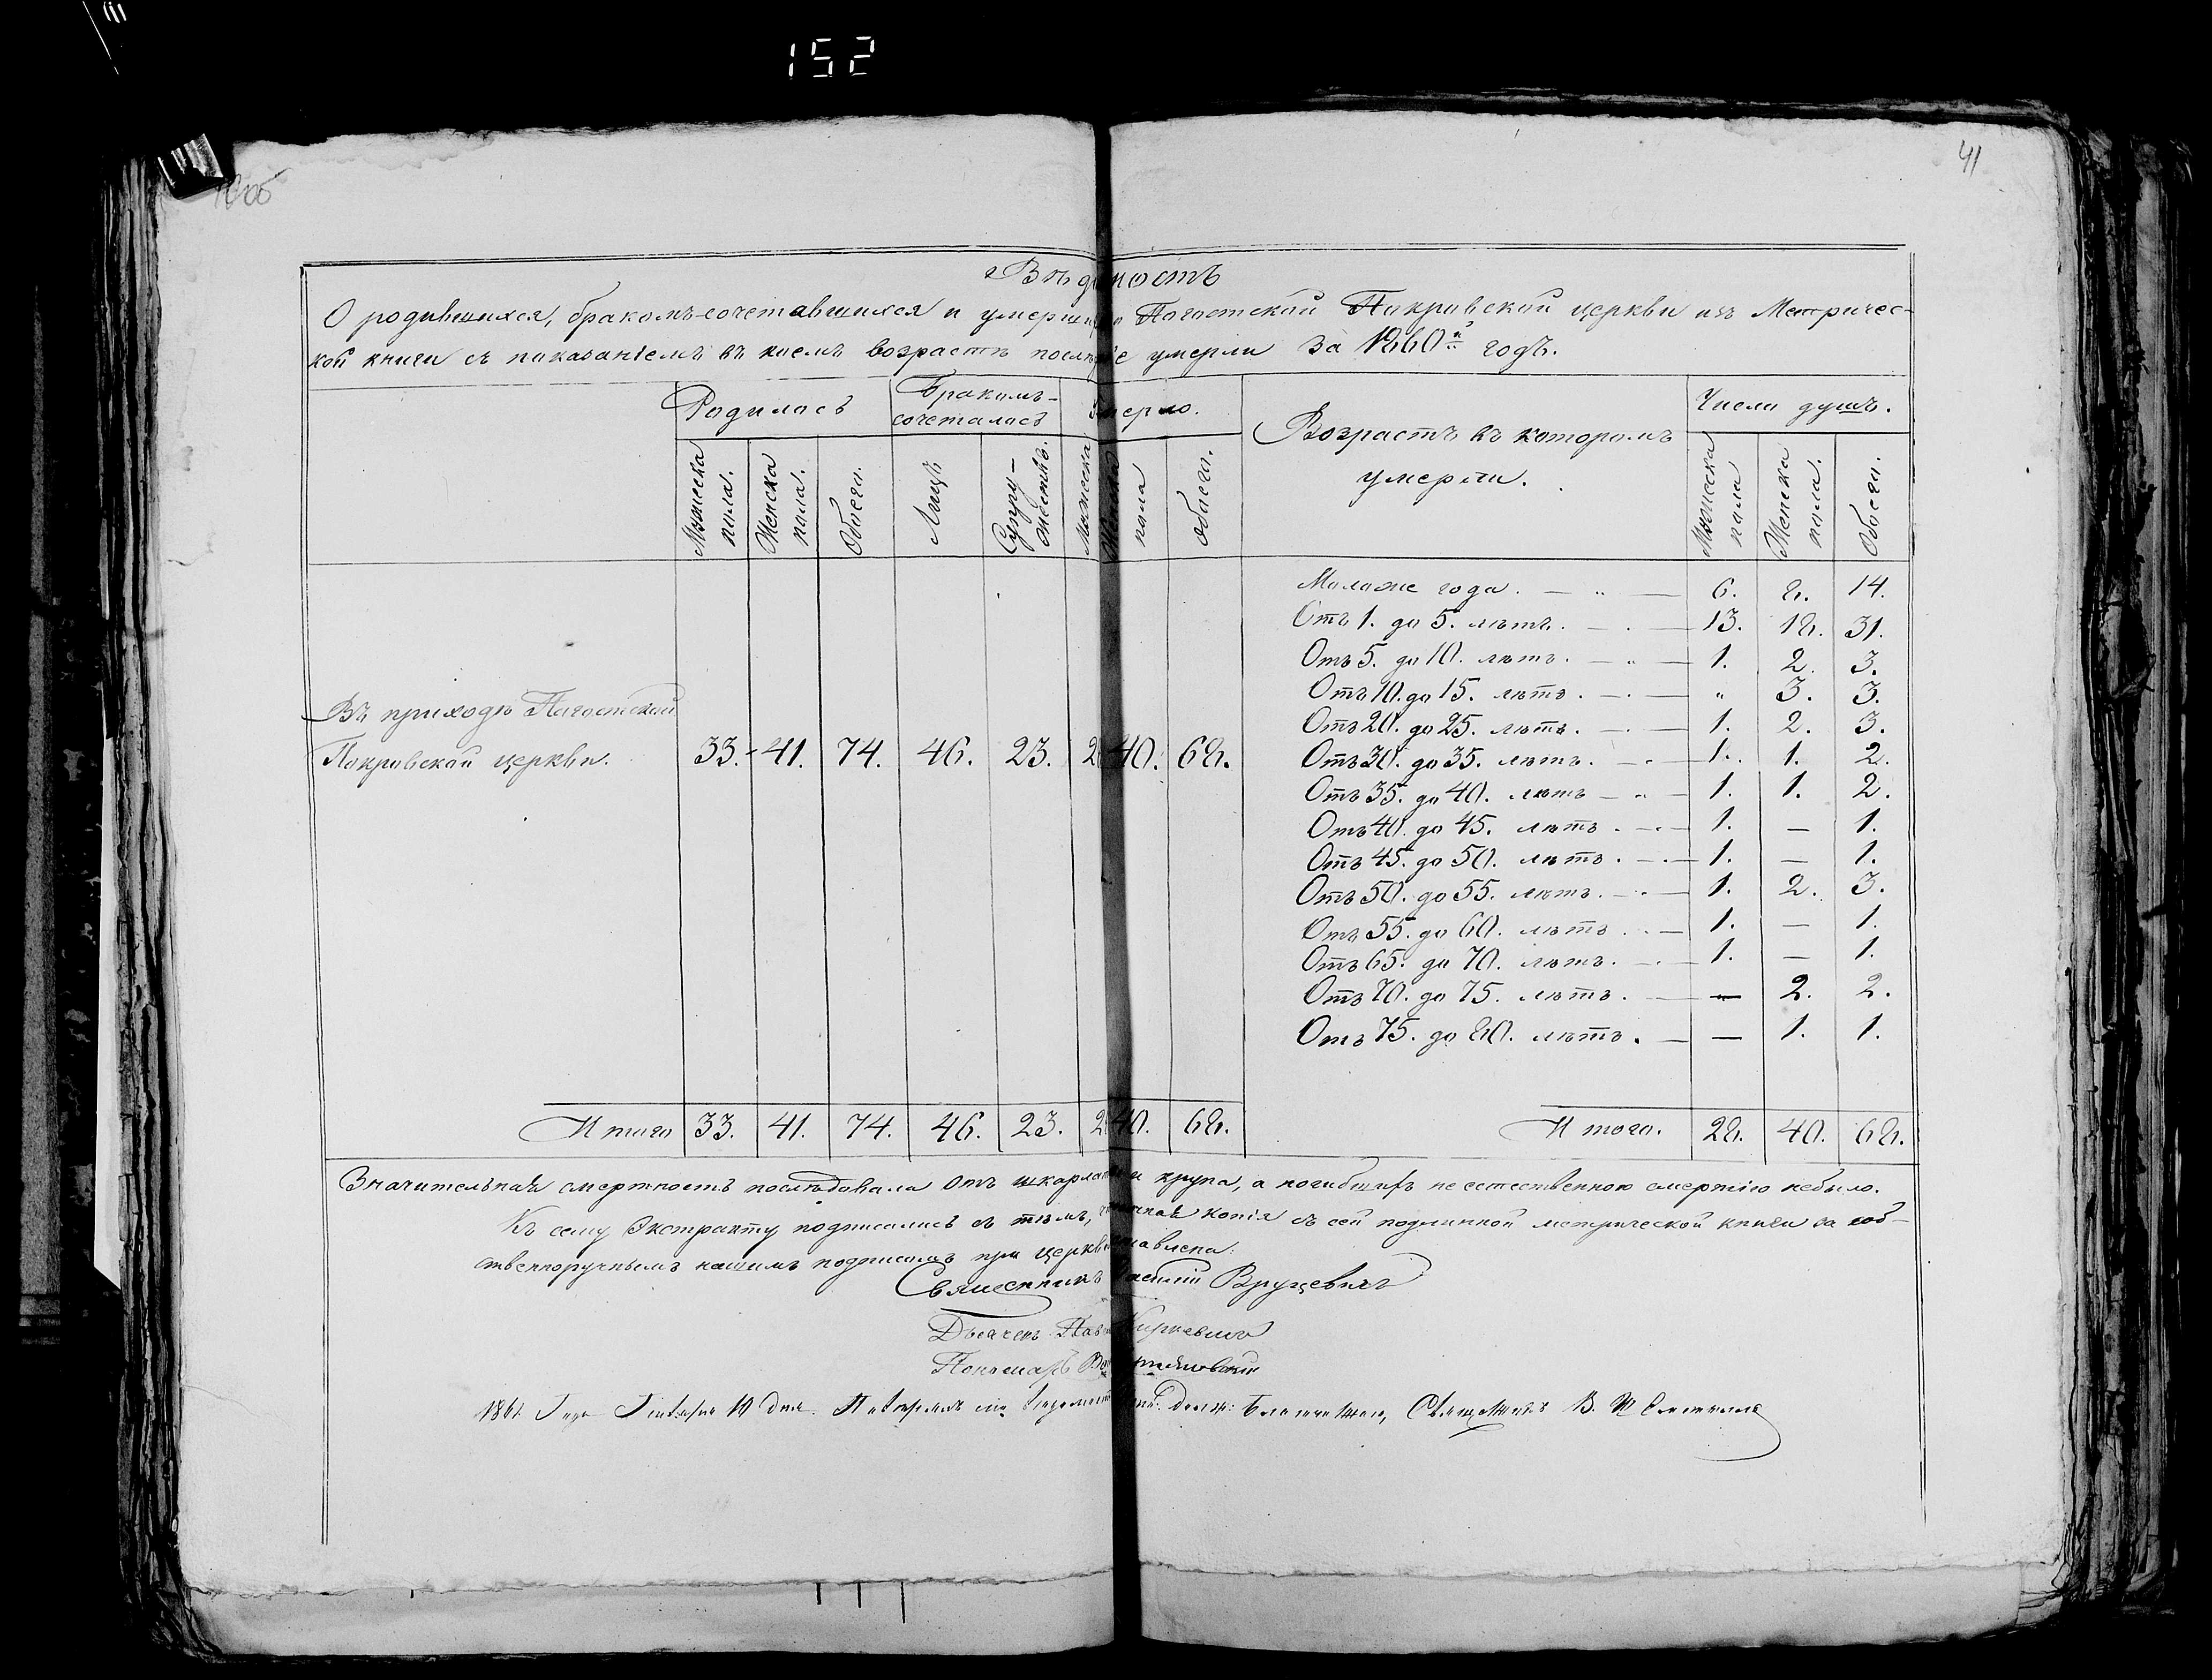 152
41
Вѣдомость
О родившихся, бракомъ-сочетавшихся и умерших Погостской Покровской церкви изъ Метричес-
кой книги съ показаніемъ въ коемъ возрастѣ послѣдніе умерли за 1860й годъ.
Родилось
Бракомъ-сочеталось
Умерло.
Возрастъ въ которомъ умерли.
Число душъ.
Мужеска пола.
Женска пола.
Обоего.
Лицъ
Супру-жествъ.
Мужеска
Женска пола
обоего.
Мужеска пола
Женска пола.
Обоего.
Моложе года. — „ — 6. 8. 14.
Отъ 1. до 5. лѣтъ. — . — 13. 18. 31.
Отъ 5. до 10. лѣтъ. — „ — 1. 2. 3.
Отъ 10. до 15. лѣтъ. — . — „ 3. 3.
Отъ 20. до 25. лѣтъ. — . — 1. 2. 3.
Отъ 30. до 35. лѣтъ. — . 1. 1. 2.
Отъ 35. до 40. лѣтъ — „ — 1. 1. 2.
Отъ 40. до 45. лѣтъ . — . — 1. — 1.
Отъ 45. до 50. лѣтъ . — . — 1. — 1.
Отъ 50. до 55. лѣтъ. — . — 1. 2. 3.
Отъ 55. до 60. лѣтъ . . — 1. — 1.
Отъ 65. до 70. лѣтъ. — . — 1. — 1.
Отъ 70. до 75. лѣтъ. — — 2. 2.
Отъ 75. до 80. лѣтъ. — — 1. 1.
Въ приходѣ Погостской
Покровской церкви. 33. 41. 74. 46. 23. 2 40. 68.
Итого 33. 41. 74. 46. 23. 2 40. 68.
Итого. 28. 40. 68.
Значительная смертность послѣдовала отъ шкарла и крупа, а погибшихъ неестественною смертію небыло.
Къ сему Экстракту подписались съ тѣмъ, копія съ сей подлинной метрической книги за соб-
ственноручнымъ нашимъ подписомъ при церкви тавлена.
Священникъ асилій Вруцевичъ
Дьячекъ
Пономарь
1861 Года 10 дня. Священникъ В.